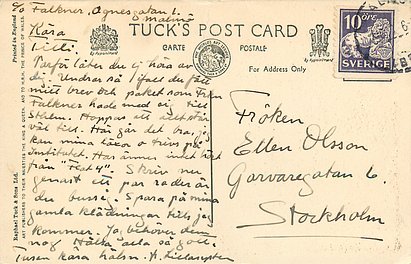 c/o Falkner, Agnesgatan 1.
Malmö
Kära
Lilli.
Varför låter Du ej höra av
dig. Undrar så ifall du fått
mitt brev och paket som Fru
Falkner hade med sig till
Sthlm. Hoppas att allt står
väl till. Här går det bra, jag
kan mina läxor o trivs på
Institutet. Har ännu inte hört
från
Skriv nu
genast ett par rader är
du bussig. Spara på mina
gamla klädningar tills jag
kommer. Jag behöver dem
nog. Hälsa alla så gott.
Tusen kära hälsn.
TUCK'S POST CARD
CARTE
POSTALE
For Address Only
By Appointment
By Appointment
Printed in England
Raphael Tuck & Sons Ltd.
ART PUBLISHERS TO THEIR MAJESTIES THE KING & QUEEN, AND TO H.R.H. THE PRINCE OF WALES.
10 ÖRE
SVERIGE
Fröken
Ellen Olsson
Garvaregatan 6.
Stockholm